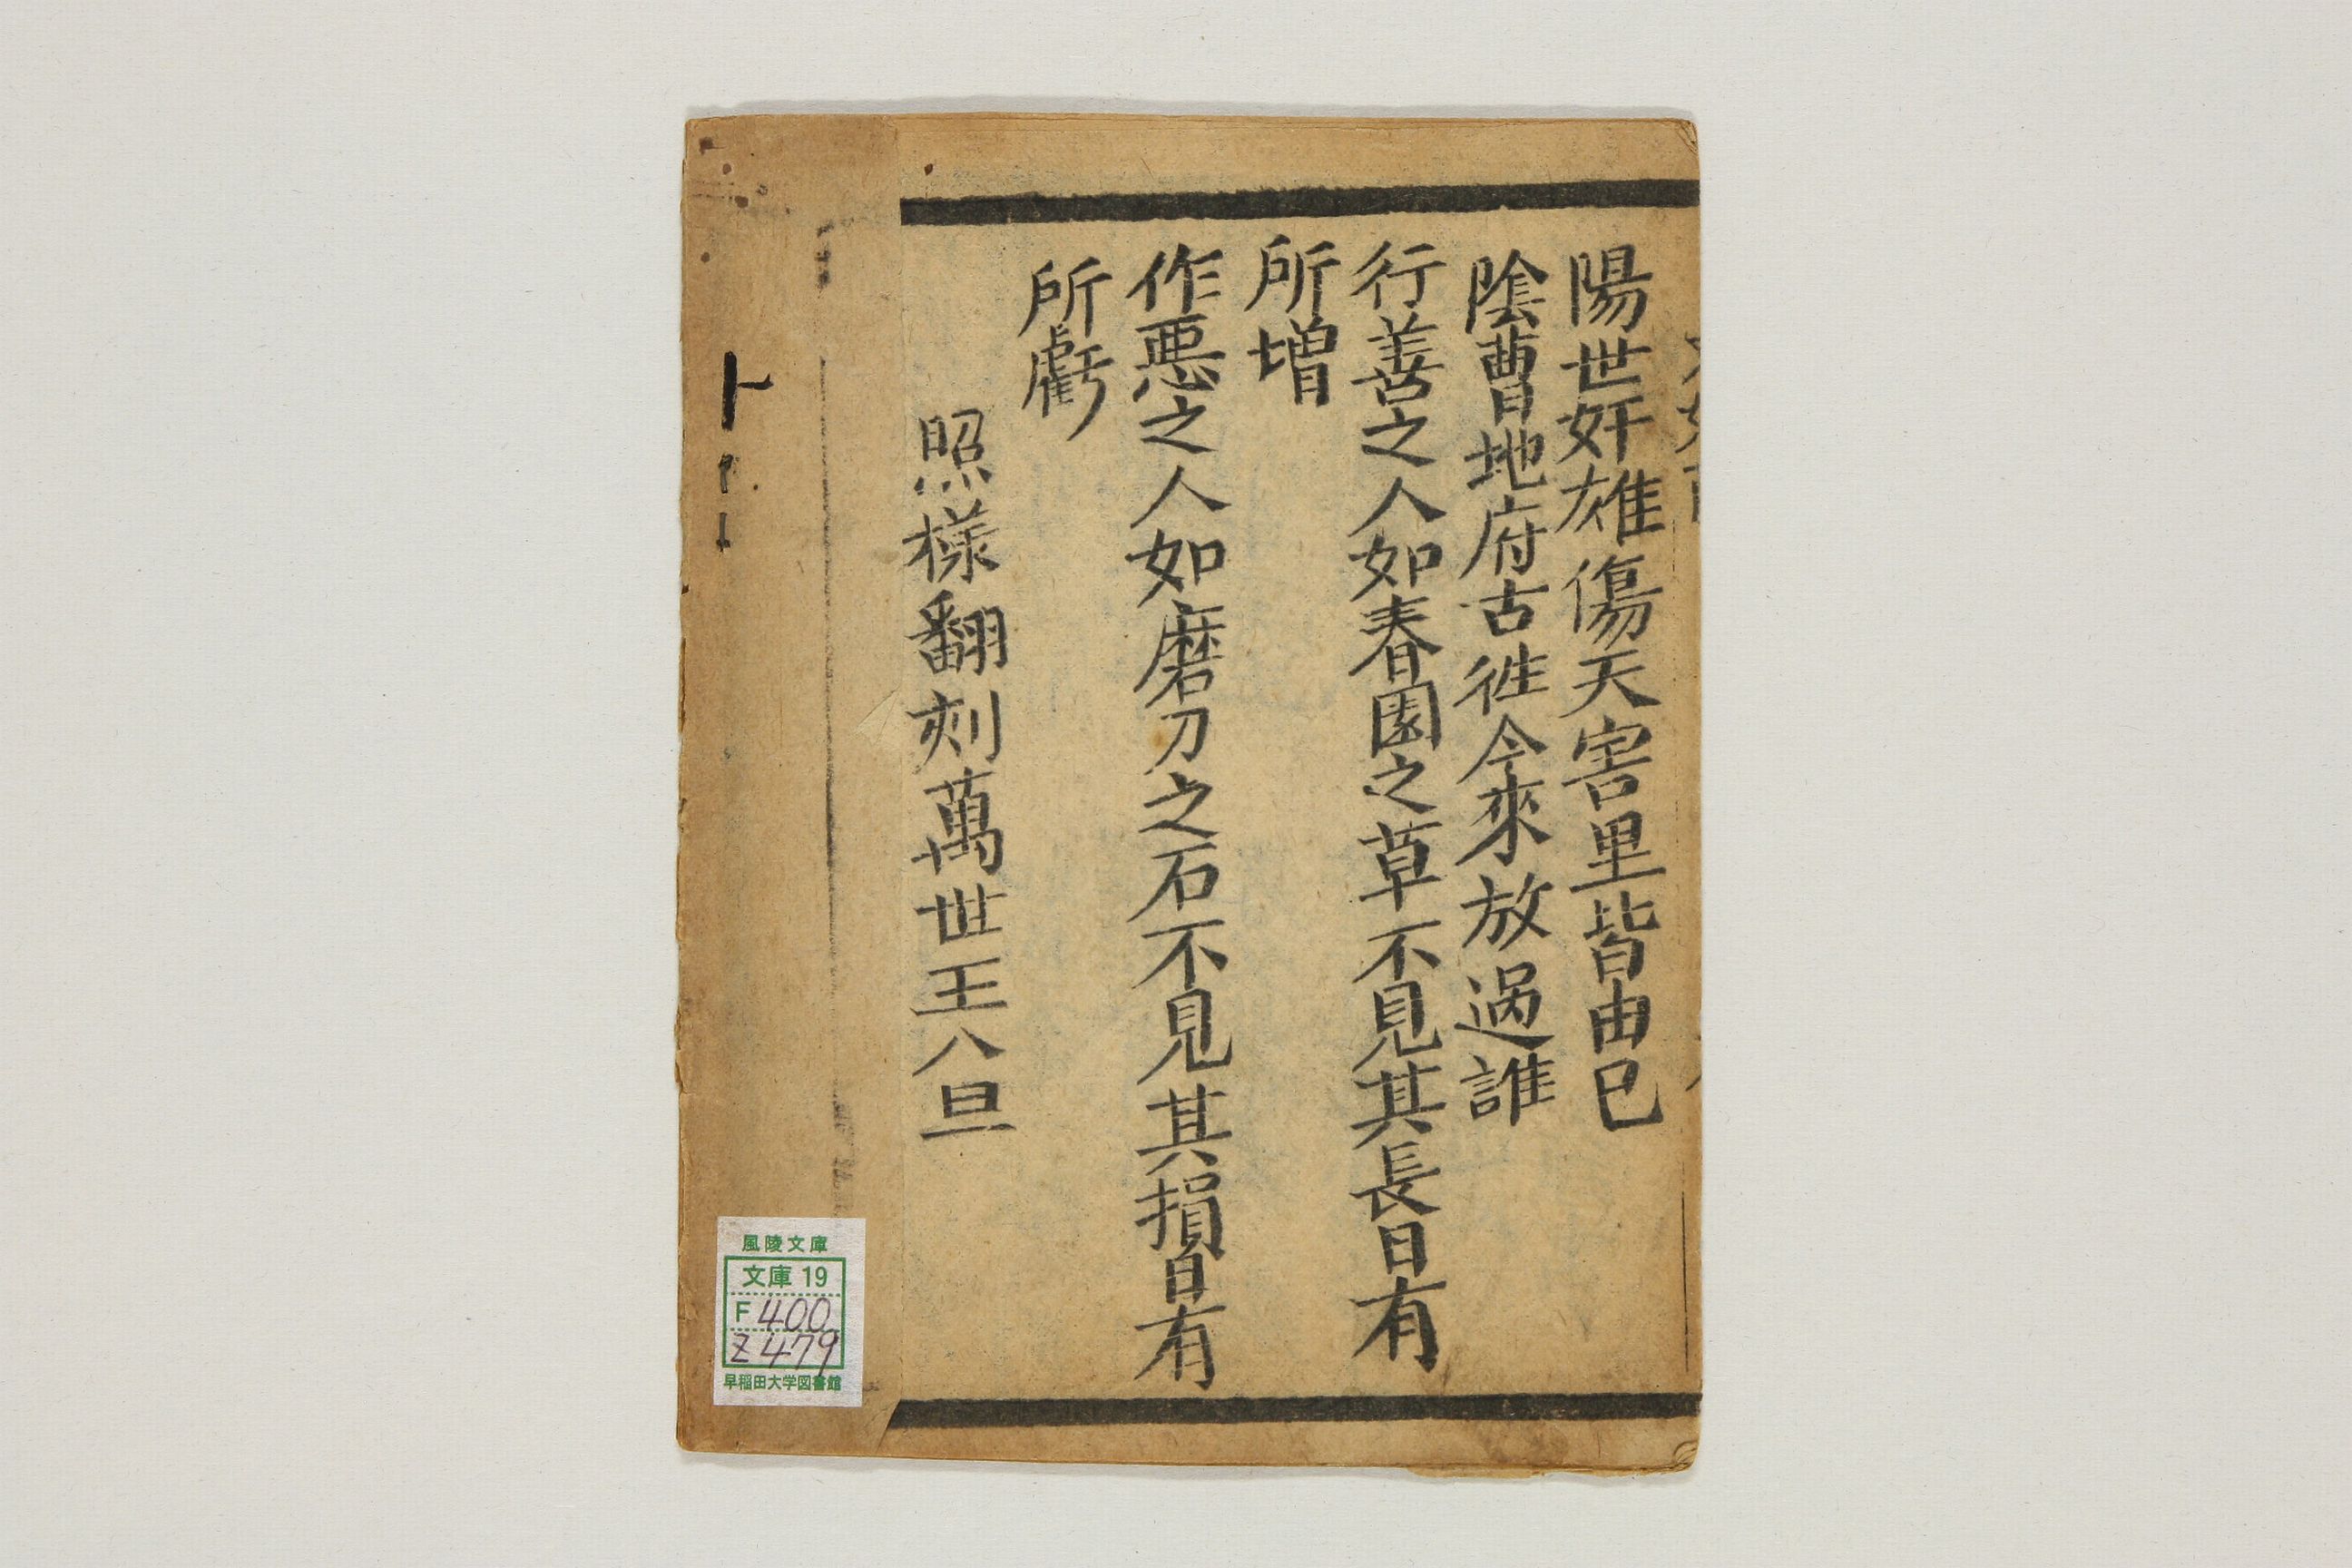 陽世奸雄傷天害里皆由己
陰曹地府古徃今來放過誰
行善之人如春園之草不見其長日有
所增
作悪之人如磨刀之石不見其損日有
所虧
照樣翻刻萬世王八旦
風陵文庫
文庫 19
F 400
Z 479
早稲田大学図書館